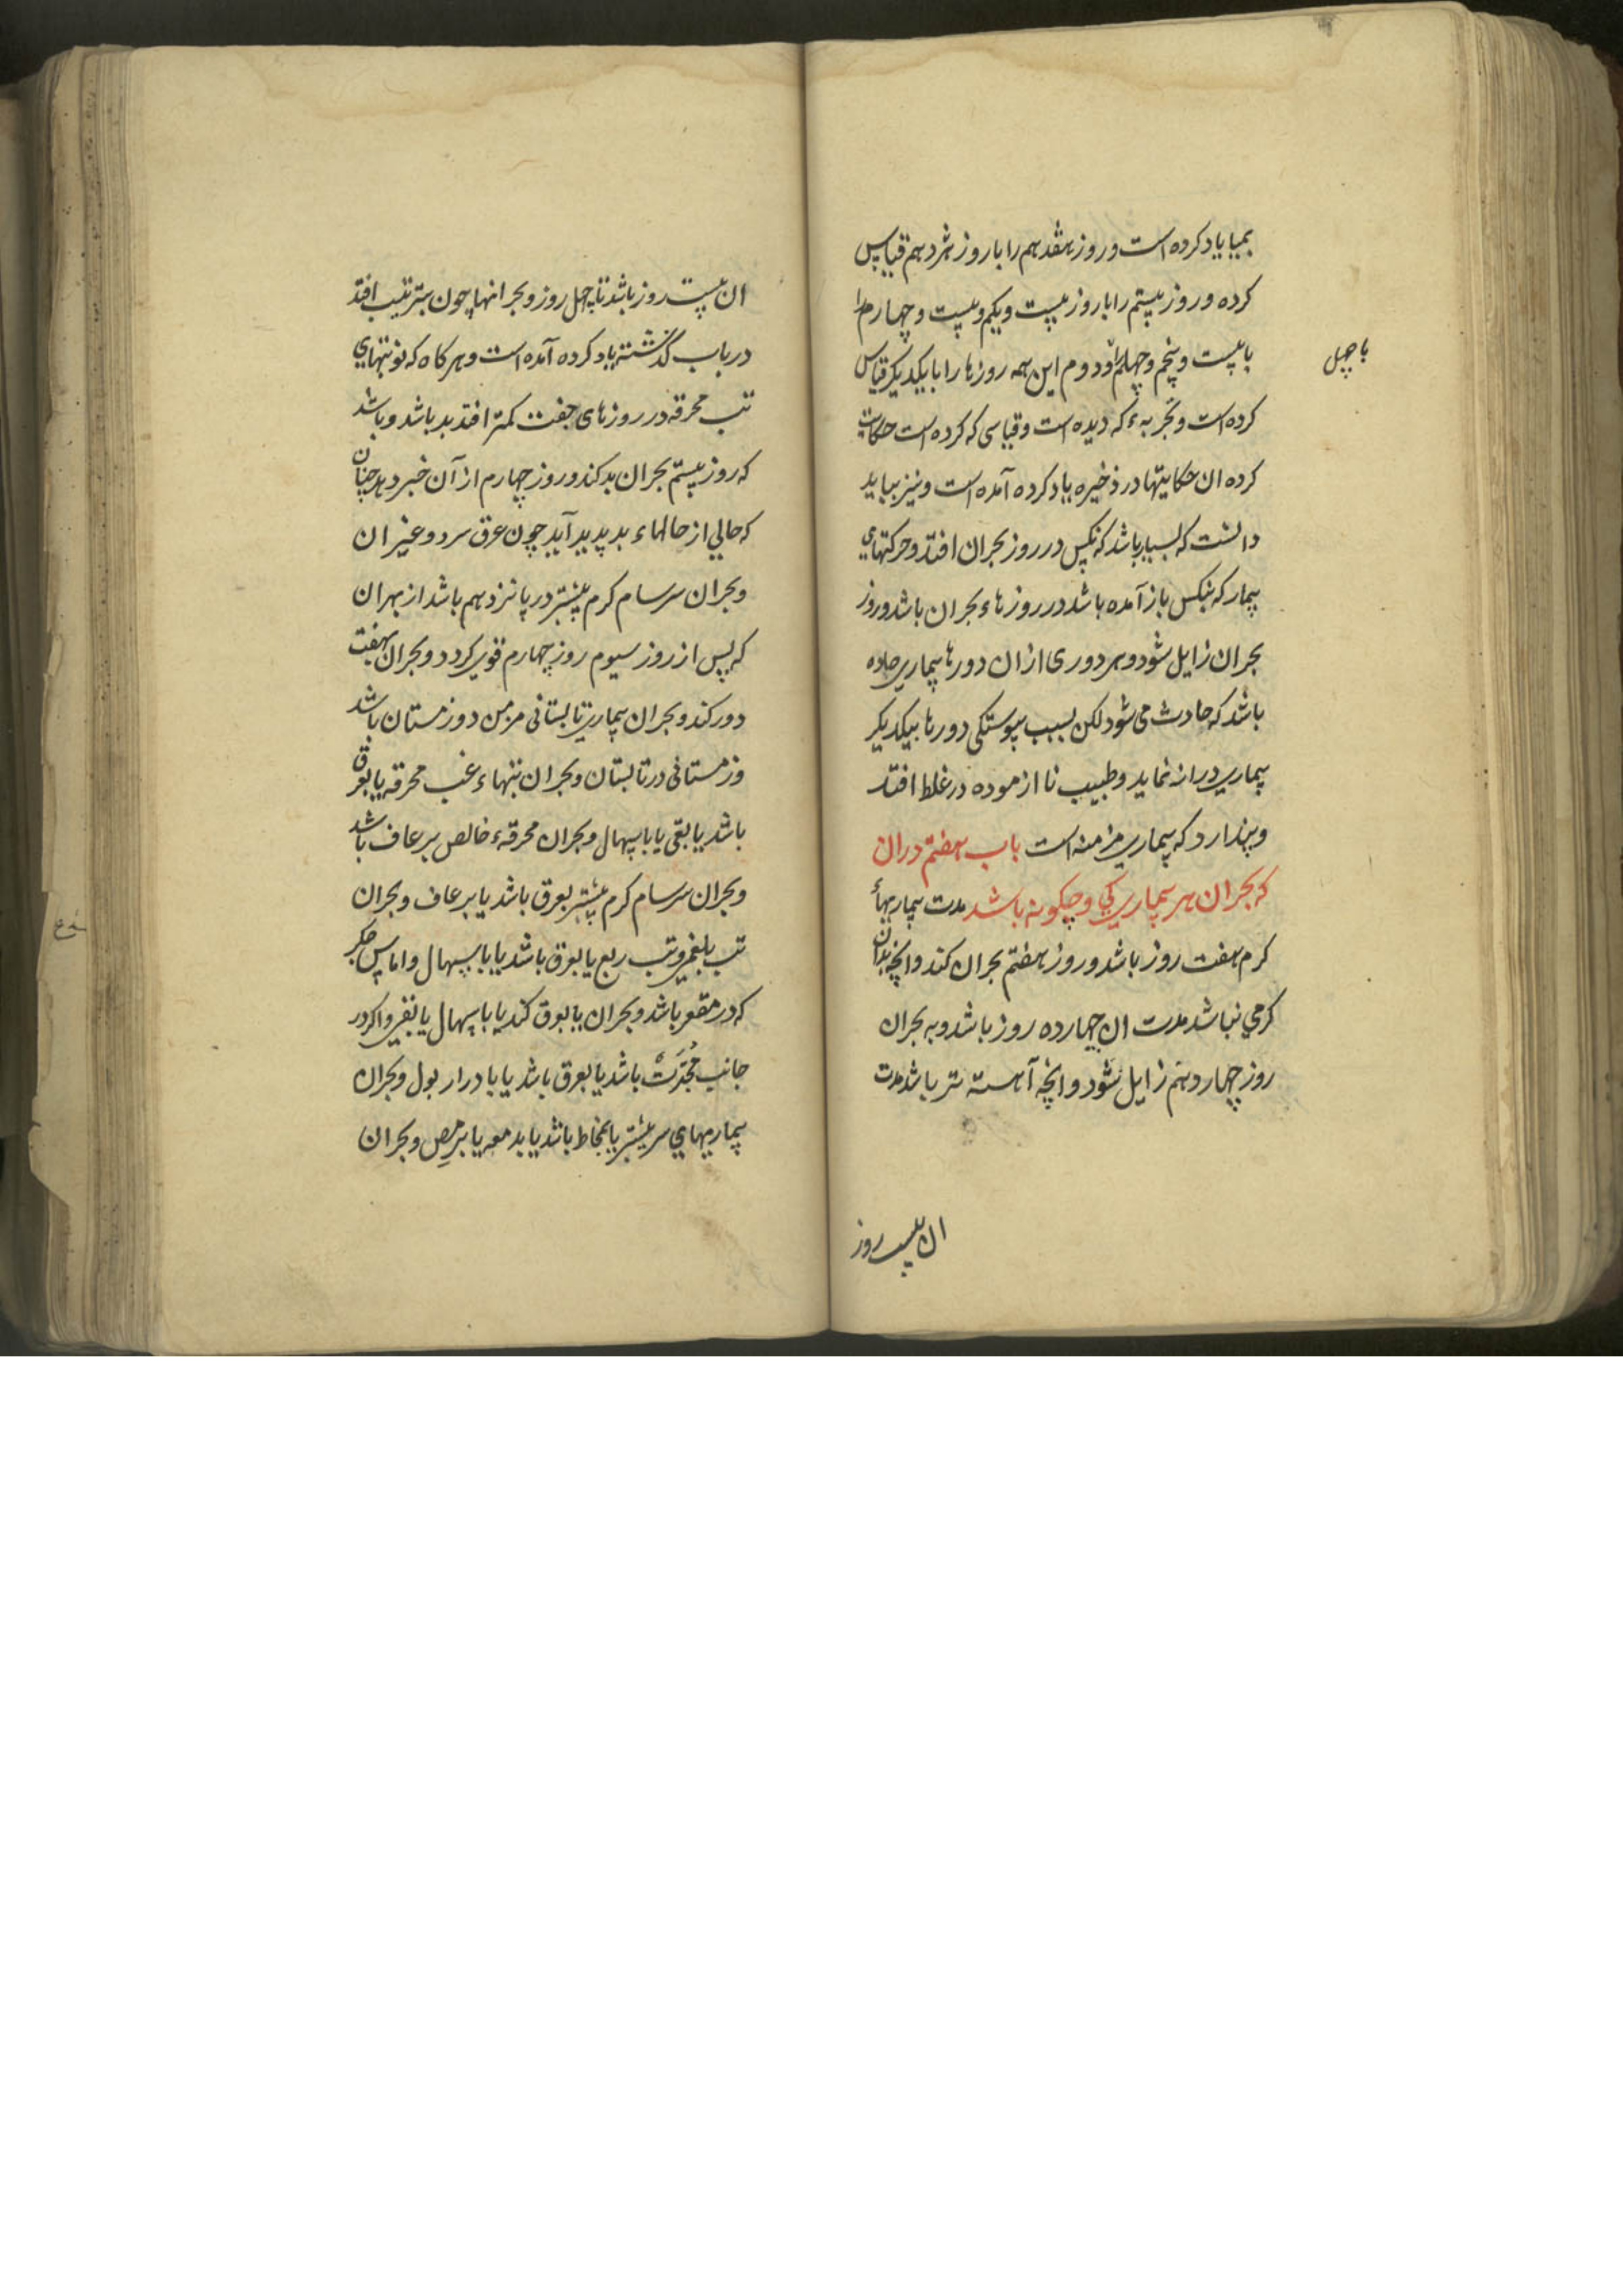 بمیا یاد کرده است و روز هفدهم را با روز هژدهم قیاس
کرده و روز بیستم را با روز بیست و یکم و بیست و چهارم را
با بیست و پنجم و چهلم را و دوم این همه روزها را با یکدیکر قیاس
با چهل
کرده است و تجربهٔ که دیده است و قیاسی که کرده است حکایت
کرده ان حکایتها در ذخیره یاد کرده آمده است و نیز بباید
دانست که بسیار باشد که نکس در روز بحران افتد و حرکتهای
بیمار که بنکس باز آمده باشد در روزهاء بحران باشد و روز
بحران زایل شود و هر دوری ازان دورها بیماری حاده
باشد که حادث می شود لکن بسبب پیوستکی دورها بیکدیکر
بیماری دراز نماید و طبیب نا ازموده در غلط افتد
و پندارد که بیماری مزمنه است باب هفتم دران
که بحران هر بیماری کی و چکونه باشد مدت بیماریهاء
کرم هفت روز باشد و روز هفتم بحران کند و انچه بدان
کرمی نباشد مدت ان چهارده روز باشد و به بحران
روز چهاردهم زایل شود و انچه آهسته تر باشد مدت
ان بیست روز
ان بیست روز باشد تا چهل روز و بحرانها چون بترتیب افتد
در باب کذشته یاد کرده آمده است و هرکاه که نوبتهای
تب محرقه در روزهای جفت کمتر افتد بد باشد و باشد
که روز بیستم بحران بد کند و روز چهارم از آن خبر دهد چنان
که حالی از حالهاء بد پدید آید چون عرق سرد و غیر ان
و بحران سرسام کرم بیشتر در پانزدهم باشد از بهر ان
که پس از روز سیوم روز چهارم قوی کردد و بحران بهفت
دور کند و بحران بیماری تابستانی مزمن در زمستان باشد
و زمستانی در تابستان و بحران تبهاء غب محرقه یا بعرق
باشد یا بقی یا باسهال و بحران محرقهٔ خالص برعاف باشد
و بحران سرسام کرم بیشتر بعرق باشد یا برعاف و بحران
تب بلغمی و تب ربع یا بعرق باشد یا باسهال و اماس جکر
که در مقعر باشد و بحران یا بعرق کند یا باسهال یا بقی و اکر در
جانب محدبت باشد یا بعرق باشد یا بادرار بول و بحران
بیماریهای سر بیشتر یا بمخاط باشد یا بدمعه یا برمص و بحران